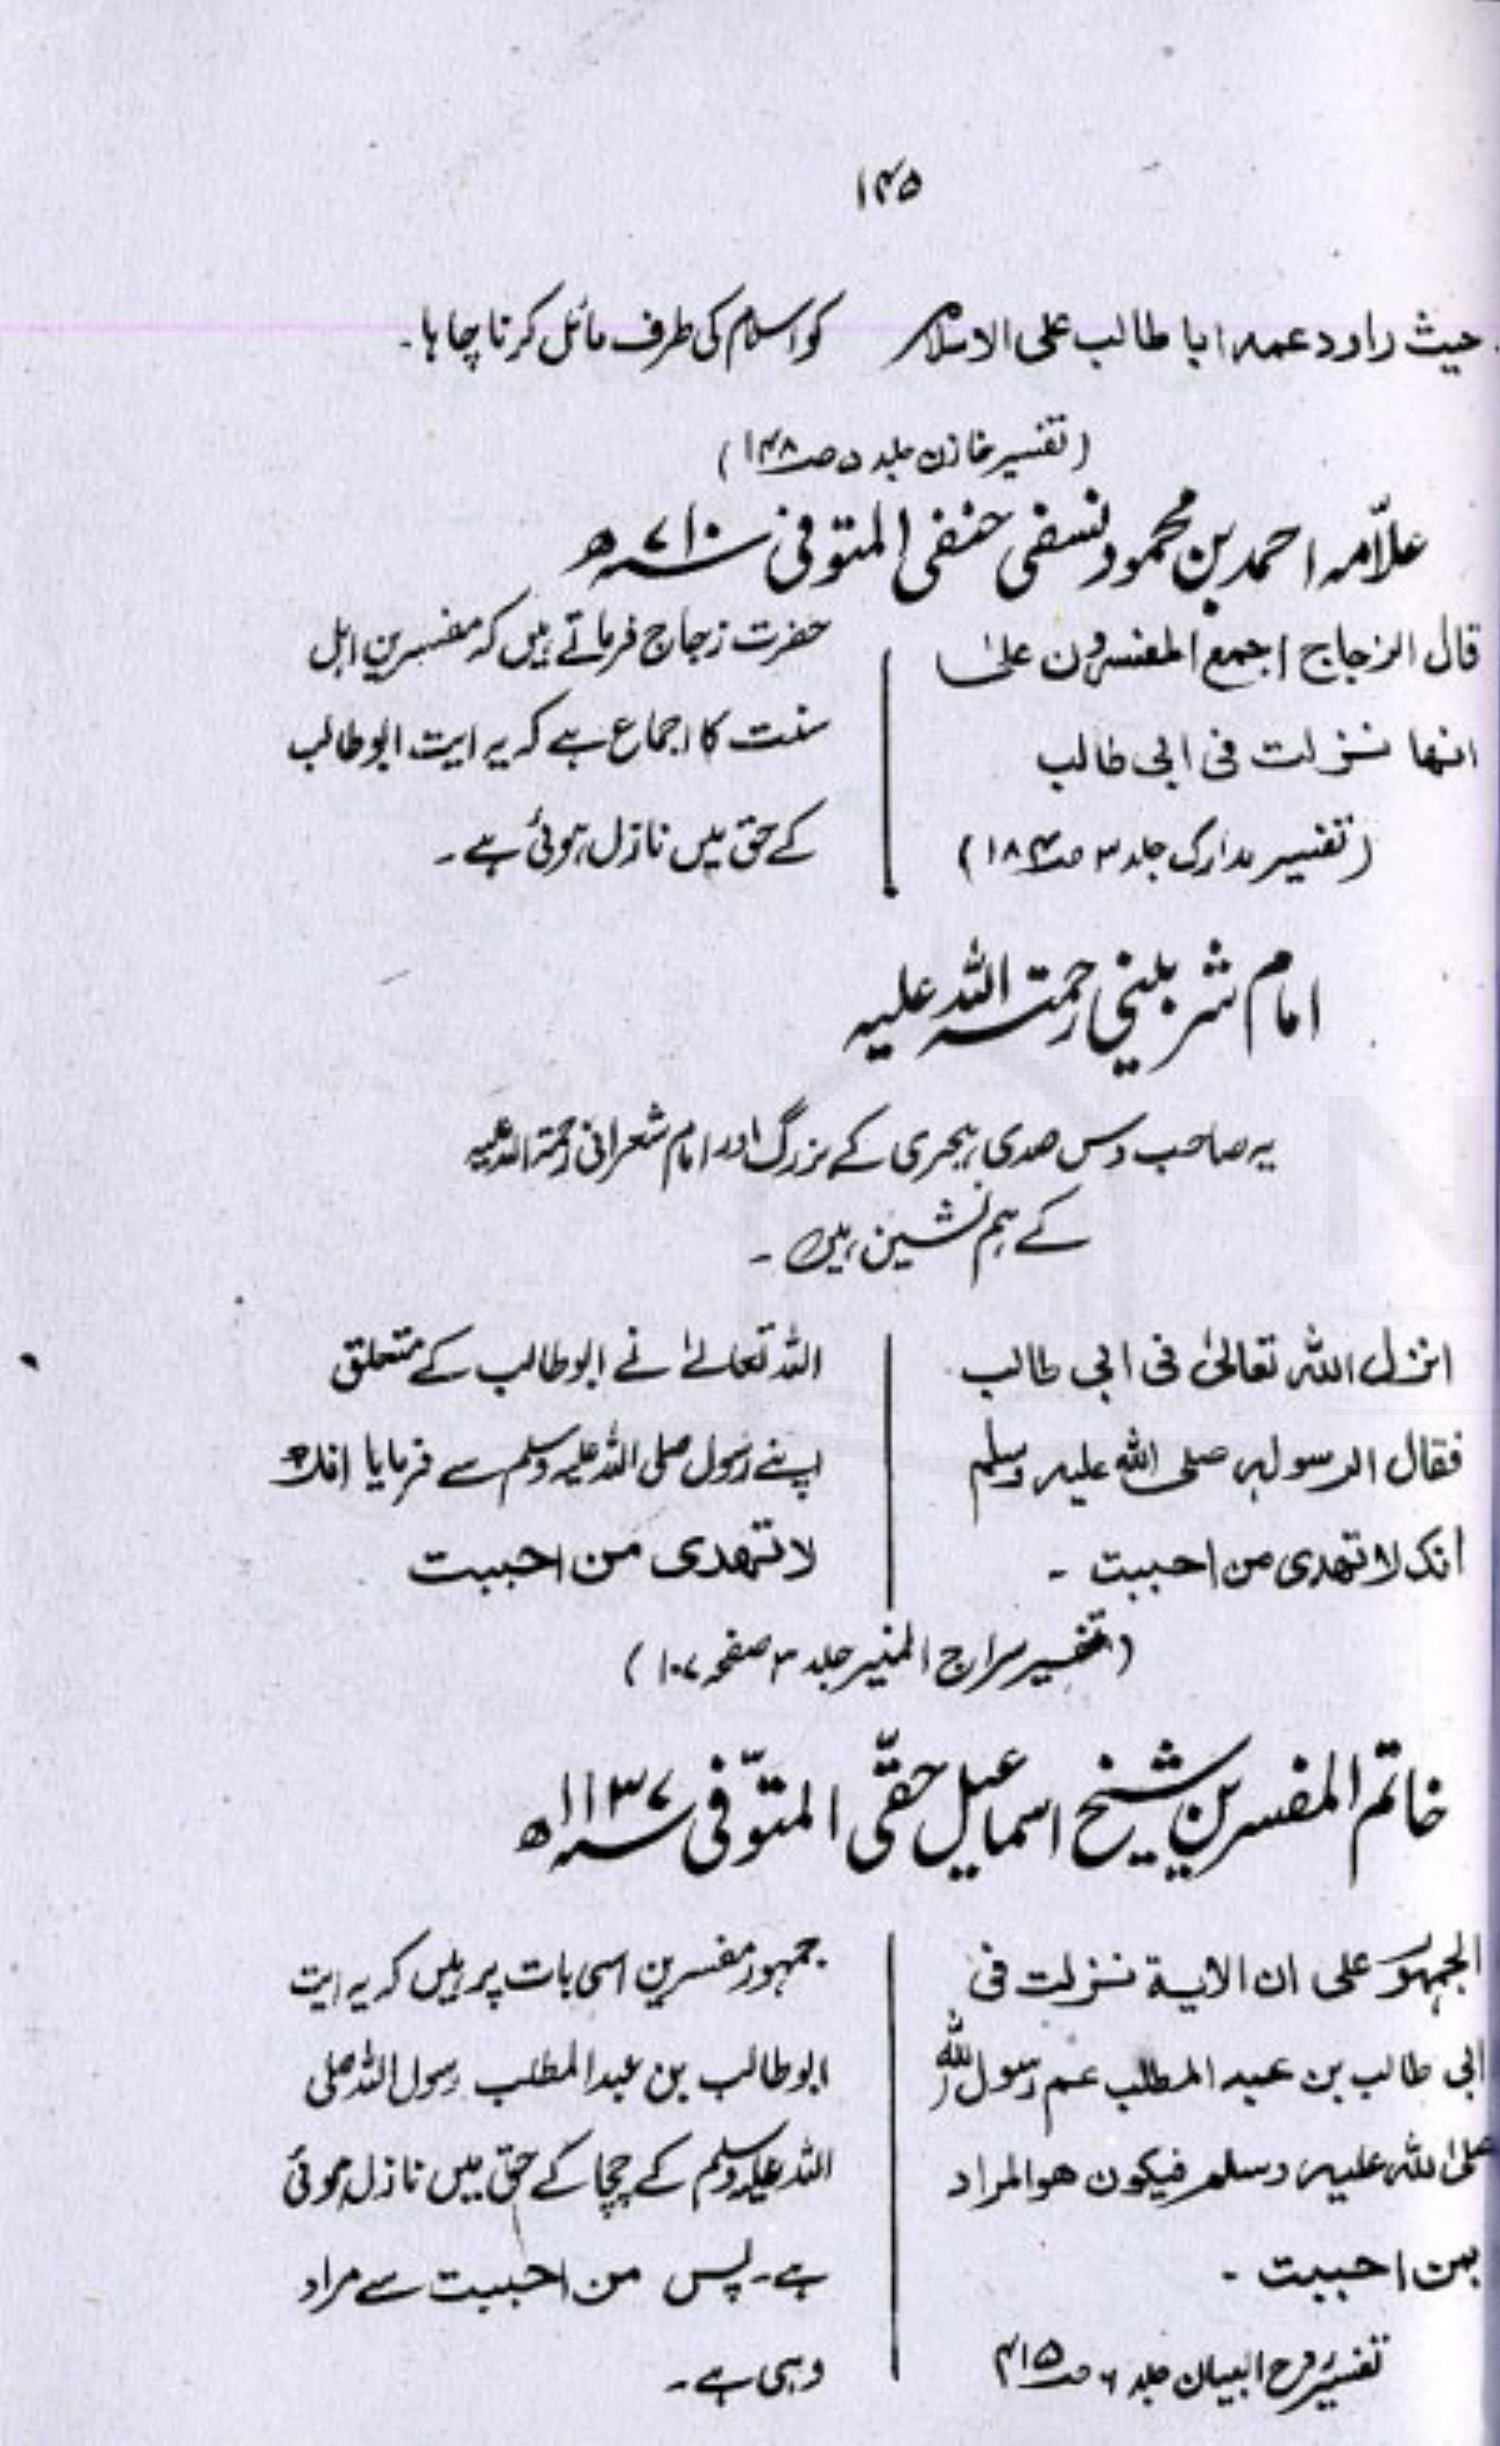 ۱۴۵
حیث راود عمہ ابا طالب علی الاسلام
کو اسلام کی طرف مائل کرنا چاہا۔
(تفسیر خازن جلد ۵ صـ۱۴۸)
علاّمہ احمد بن محمود نسفی حنفی المتوفی سنہ ۷۱۰ھ
قال الزجاج اجمع المفسرون علیٰ
انھا نزلت فی ابی طالب
(تفسیر مدارک جلد ۳ صـ۱۸۴)
حضرت زجاج فرماتے ہیں کہ مفسرین اہل
سنت کا اجماع ہے کہ یہ ایت ابوطالب
کے حق میں نازل ہوئی ہے۔
امام شربلینی رحمتہ اللہ علیہ
یہ صاحب دس صدی ہجری کے بزرگ اور امام شعرانی رحمۃ اللہ علیہ
کے ہم نشین ہیں۔
انزل اللہ تعالیٰ فی ابی طالب
فقال الرسولہ صلی اللہ علیہ وسلم
انک لا تھدی من احببت ۔
اللہ تعالےٰ نے ابوطالب کے متعلق
اپنے رسول صلی اللہ علیہ وسلم سے فرمایا انک
لا تھدی من احببت
(تفسیر سراج المنیر جلد ۳ صفحہ ۱۰۷)
خاتم المفسرین شیخ اسماعیل حقّی المتوّفی سنہ ۱۱۳۷ھ
الجمہور علی ان الایۃ نزلت فی
ابی طالب بن عبد المطلب عم رسول اللہ
صلی اللہ علیہ وسلم فیکون ھو المراد
بمن احببت ۔
تفسیر روح البیان جلد ۶ صـ۴۱۵
جمہور مفسرین اسی بات پر ہیں کہ یہ ایت
ابوطالب بن عبدالمطلب رسول اللہ صلی
اللہ علیہ وسلم کے چچا کے حق میں نازل ہوئی
ہے۔ پس من احببت سے مراد
وہی ہے۔